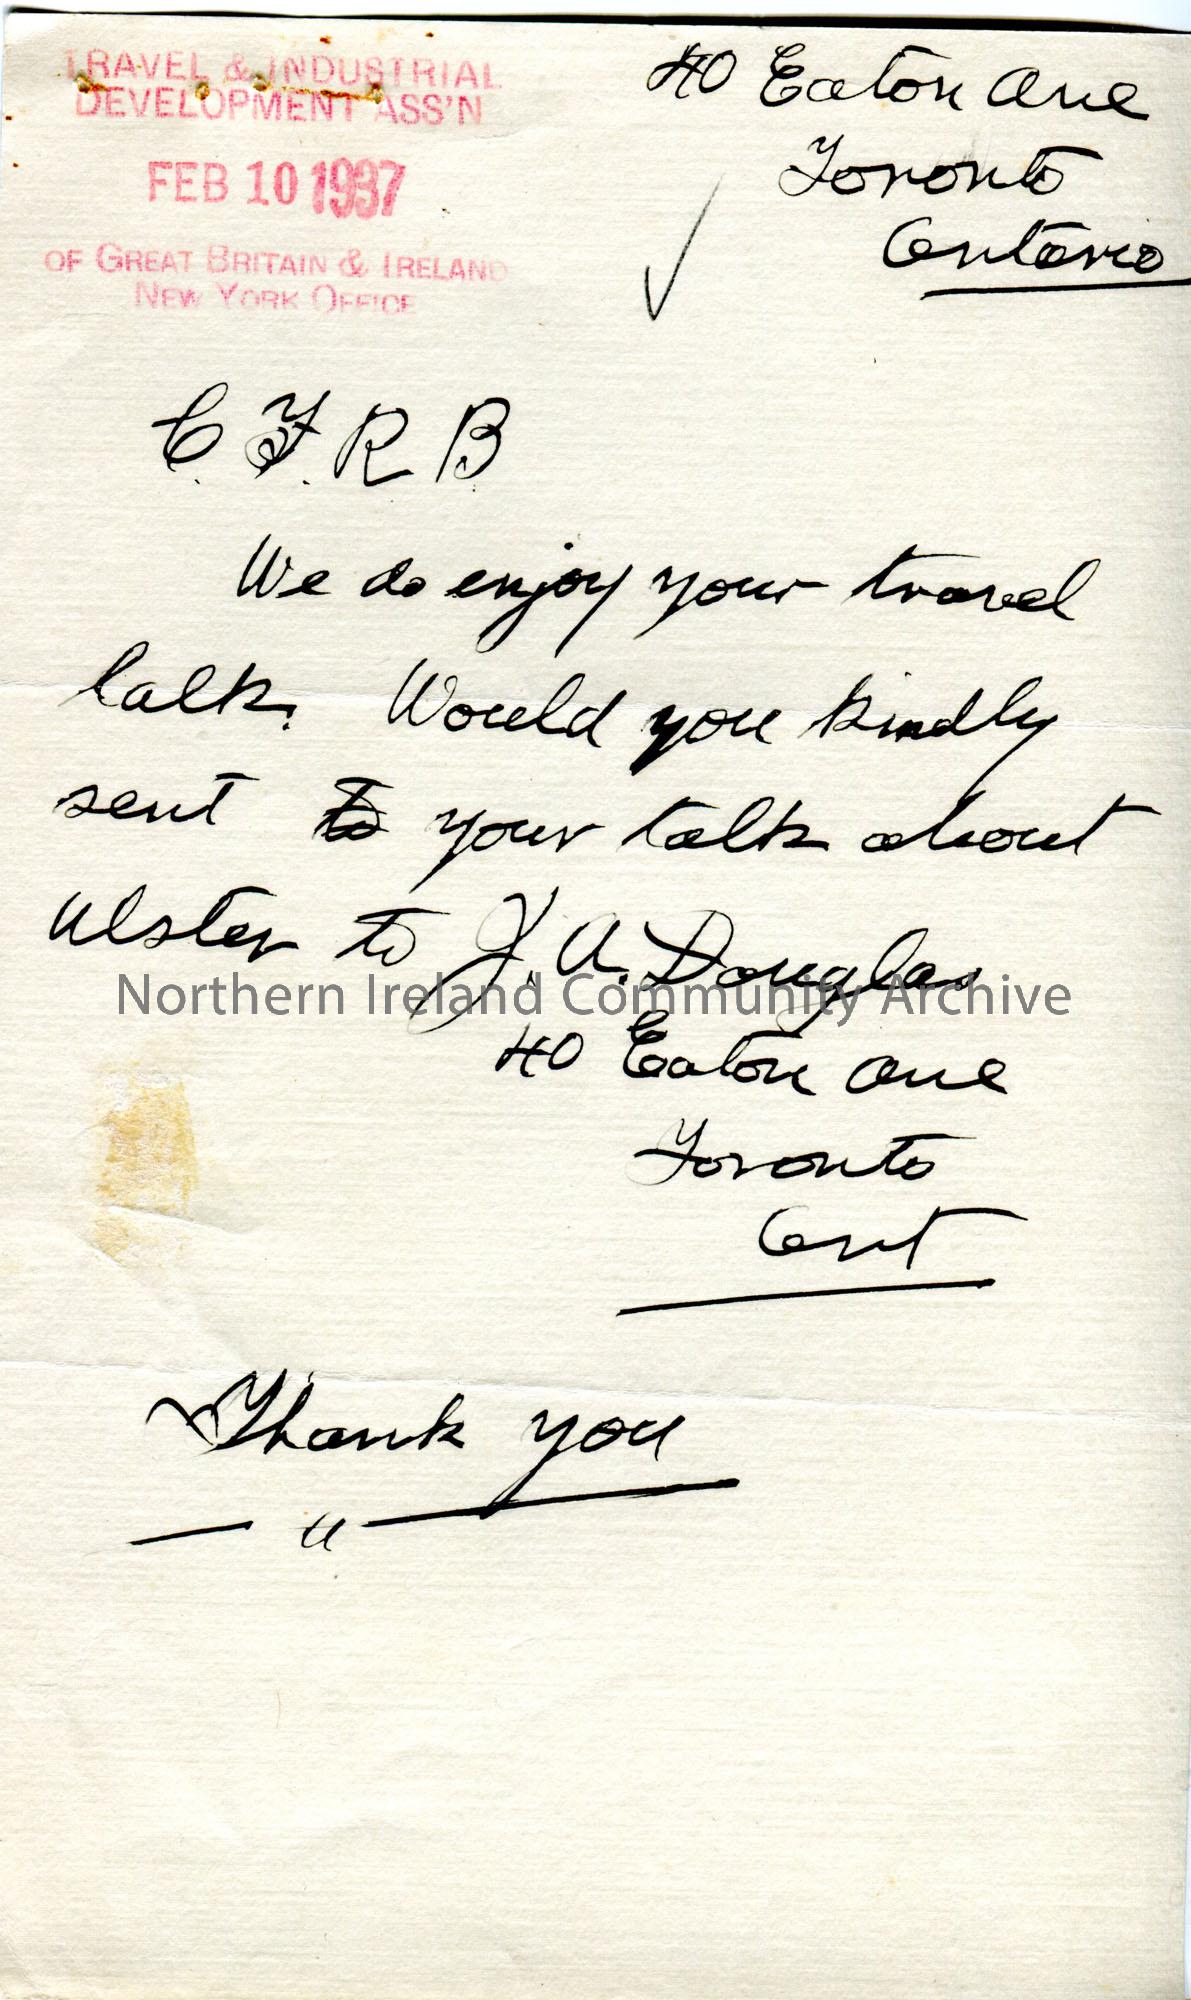 TRAVEL & INDUSTRIAL
DEVELOPMENT ASS'N
FEB 10 1937
OF GREAT BRITAIN & IRELAND
NEW YORK OFFICE
40 Eaton Ave
Toronto
Ontario
C. F. R B
We do enjoy your travel
talk. Would you kindly
sent to your talk about
Ulster to J. A. Douglas
Northern Ireland Community Archive
40 Eaton Ave
Toronto
Ont
Thank you
— " —